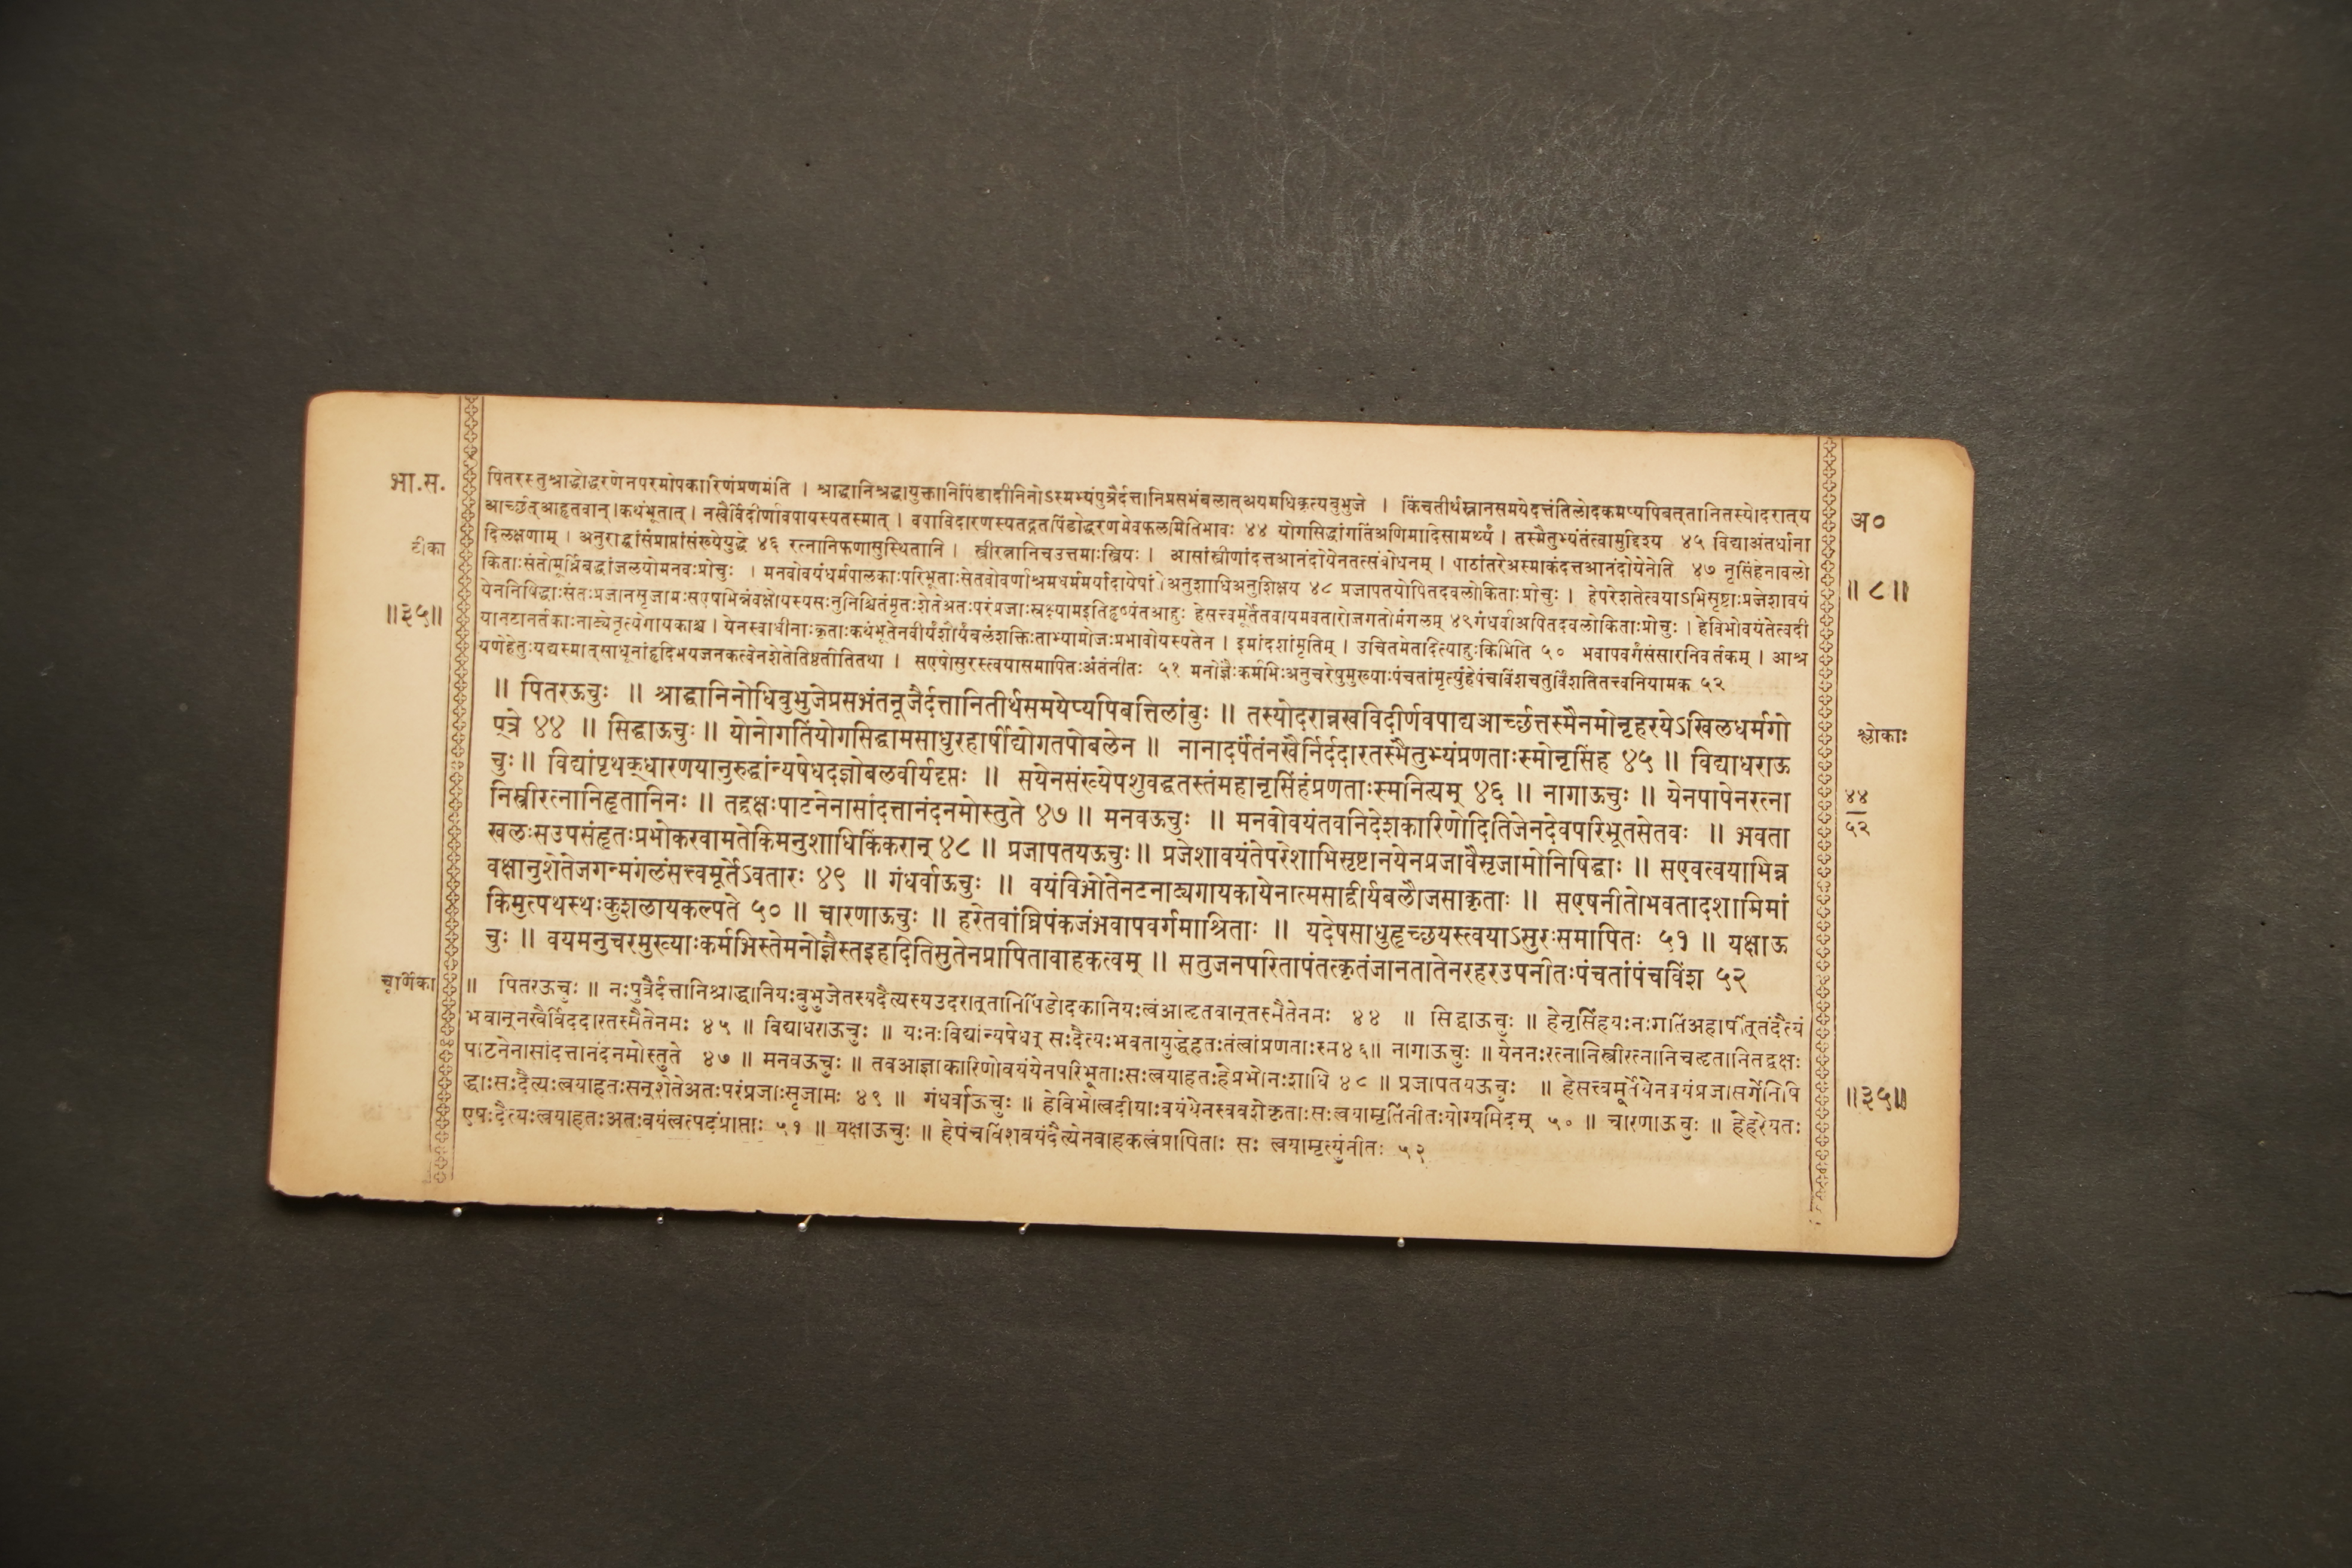 भा.स.
पितरस्तुश्राद्धोद्धरणेनपरमोपकारिणंप्रणमंति । श्राद्धानिश्रद्धायुक्तानिपिंडादीनिनोऽस्मभ्यंपुत्रैर्दत्तानिप्रसभंबलात्अयमधिकृत्यबुभुजे । किंचतीर्थस्नानसमयेदत्तंतिलोदकमप्यपिबत्तानितस्योदरात्य
आर्च्छत्आहृतवान् ।कथंभूतात् । नखैर्विदीर्णावपायस्यतस्मात् । वपाविदारणस्यतद्गतपिंडोद्धरणमेवफलमितिभावः ४४ योगसिद्धांगतिंअणिमादिसामर्थ्यं । तस्मैतुभ्यंतंत्वामुद्दिश्य ४५ विद्याअंतर्धाना
दिलक्षणाम् । अनुराद्धांसंप्राप्तांसंख्येयुद्धे ४६ रत्नानिफणासुस्थितानि । स्त्रीरत्नानिचउत्तमाःस्त्रियः । आसांस्त्रीणांदत्तआनंदोयेनतत्संबोधनम् । पाठांतरेअस्माकंदत्तआनंदोयेनेति ४७ नृसिंहेनावलो
किताःसंतोमूर्ध्निबद्धांजलयोमनवःप्रोचुः । मनवोवयंधर्मपालकाःपरिभूताःसेतवोवर्णाश्रमधर्ममर्यादायेषां।अनुशाधिअनुशिक्षय ४८ प्रजापतयोपितदवलोकिताःप्रोचुः । हेपरेशतेत्वयाऽभिसृष्टाःप्रजेशावयं
येननिषिद्धाःसंतःप्रजानसृजामःसएषभिन्नंवक्षोयस्यसःनुनिश्चितंमृतःशेतेअतःपरंप्रजाःस्रक्ष्यामइतिहृष्यंतआहुः हेसत्त्वमूर्तेतवायमवतारोजगतोमंगलम् ४९गंधर्वाअपितदवलोकिताःप्रोचुः । हेविभोवयंतेत्वदी
यानटानर्तकाःनाट्येनृत्येगायकाश्च । येनस्वाधीनाःकृताःकथंभूतेनवीर्यंशौर्यंबलंशक्तिःताभ्यामोजःप्रभावोयस्यतेन । इमांदशांमृतिम् । उचितमेतदित्याहुःकिमिति ५० भवापवर्गंसंसारनिवर्तकम् । आश्र
यणेहेतुःयद्यस्मात्साधूनांहृदिभयजनकत्वेनशेतेतिष्ठतीतितथा । सएषोसुरस्त्वयासमापितःअंतंनीतः ५१ मनोज्ञैःकर्मभिःअनुचरेषुमुख्याःपंचतांमृत्युंहेपंचविंशचतुर्विंशतितत्त्वनियामक ५२
॥ पितरऊचुः ॥ श्राद्धानिनोधिबुभुजेप्रसभंतनूजैर्दत्तानितीर्थसमयेप्यपिबत्तिलांबुः ॥ तस्योदरान्नखविदीर्णवपाद्यआर्च्छत्तस्मैनमोनृहरयेऽखिलधर्मगो
प्त्रे ४४ ॥ सिद्धाऊचुः ॥ योनोगतिंयोगसिद्धामसाधुरहार्षीद्योगतपोबलेन ॥ नानादर्पंतंनखैर्निर्ददारतस्मैतुभ्यंप्रणताःस्मोनृसिंह ४५ ॥ विद्याधराऊ
चुः ॥ विद्यांपृथक्धारणयानुरुद्धांन्यषेधदज्ञोबलवीर्यदृप्तः ॥ सयेनसंख्येपशुवद्धतस्तंमहानृसिंहंप्रणताःस्मनित्यम् ४६ ॥ नागाऊचुः ॥ येनपापेनरत्ना
निस्त्रीरत्नानिहृतानिनः ॥ तद्वक्षःपाटनेनासांदत्तानंदनमोस्तुते ४७ ॥ मनवऊचुः ॥ मनवोवयंतवनिदेशकारिणोदितिजेनदेवपरिभूतसेतवः ॥ भवता
खलःसउपसंहृतःप्रभोकरवामतेकिमनुशाधिकिंकरान् ४८ ॥ प्रजापतयऊचुः ॥ प्रजेशावयंतेपरेशाभिसृष्टानयेनप्रजावैसृजामोनिषिद्धाः ॥ सएवत्वयाभिन्न
वक्षानुशेतेजगन्मंगलंसत्त्वमूर्तेऽवतारः ४९ ॥ गंधर्वाऊचुः ॥ वयंविभोतेनटनाट्यगायकायेनात्मसाद्वीर्यबलौजसाकृताः ॥ सएषनीतोभवतादशामिमां
किमुत्पथस्थःकुशलायकल्पते ५० ॥ चारणाऊचुः ॥ हरेतवांघ्रिपंकजंभवापवर्गमाश्रिताः ॥ यदेषसाधुहृच्छयस्त्वयाऽसुरःसमापितः ५१ ॥ यक्षाऊ
चुः ॥ वयमनुचरमुख्याःकर्मभिस्तेमनोज्ञैस्तइहदितिसुतेनप्रापितावाहकत्वम् ॥ सतुजनपरितापंतत्कृतंजानतातेनरहरउपनीतःपंचतांपंचविंश ५२
॥ पितरऊचुः ॥ नःपुत्रैर्दत्तानिश्राद्धानियःबुभुजेतस्यदैत्यस्यउदरात्तानिपिंडोदकानियःत्वंआहृतवान्तस्मैतेनमः ४४ ॥ सिद्धाऊचुः ॥ हेनृसिंहयःनःगतिंअहार्षीत्तंदैत्यं
भवान्नखैर्विददारतस्मैतेनमः ४५ ॥ विद्याधराऊचुः ॥ यःनःविद्यांन्यषेधत् सःदैत्यःभवतायुद्धेहतःतंत्वांप्रणताःस्म४६॥ नागाऊचुः ॥ येननःरत्नानिस्त्रीरत्नानिचहृतानितद्वक्षः
पाटनेनासांदत्तानंदनमोस्तुते ४७ ॥ मनवऊचुः ॥ तवआज्ञाकारिणोवयंयेनपरिभूताःसःत्वयाहतःहेप्रभोनःशाधि ४८ ॥ प्रजापतयऊचुः ॥ हेसत्त्वमूर्तेयेनवयंप्रजासर्गेनिषि
द्धाःसःदैत्यःत्वयाहतःसन्शेतेअतःपरंप्रजाःसृजामः ४९ ॥ गंधर्वाऊचुः ॥ हेविभोत्वदीयाःवयंयेनस्ववशेकृताःसःत्वयामृतिंनीतःयोग्यमिदम् ५० ॥ चारणाऊचुः ॥ हेहरेयतः
एषःदैत्यःत्वयाहतःअतःवयंत्वत्पदंप्राप्ताः ५१ ॥ यक्षाऊचुः ॥ हेपंचविंशवयंदैत्येनवाहकत्वंप्रापिताः सः त्वयामृत्युंनीतः ५२
टीका
॥३५॥
चूर्णिका
अ०
॥ ८॥
श्लोकाः
४४
५२
॥३५॥